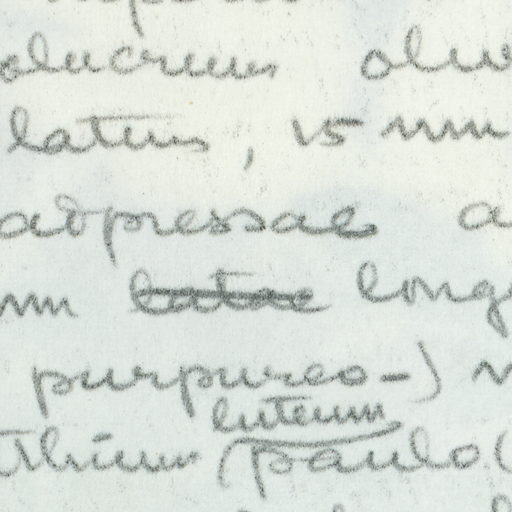 olucrum oliv
latum, 15 mm
adpressae a
mm latae long
purpureo-)
luteum
thium (paulo (